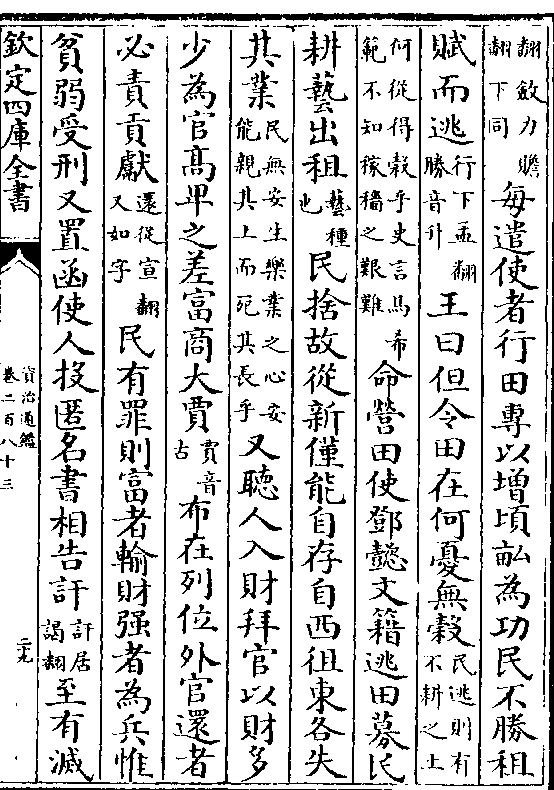 翻斂力贍
翻下同
每遣使者行田專以增頃畝為功民不勝租
賦而逃
行下孟翻
勝音升
王曰但令田在何憂無穀
民逃則有
不耕之土
何從得穀乎史言馬希
範不知稼穡之艱難
命營田使鄧懿文籍逃田募民
耕藝出租
藝種
也
民捨故從新僅能自存自西徂東各失
其業
民無安生樂業之心安
能親其上而死其長乎
又聽人入財拜官以財多
少為官髙卑之差富商大賈
賈音
古
布在列位外官還者
必責貢獻
還從宣翻
又如字
民有罪則富者輸財强者為兵惟
貧弱受刑又置函使人投匿名書相告訐
訐居
謁翻
至有滅
欽定四庫全書
資治通鑑
卷二百八十三
二十九